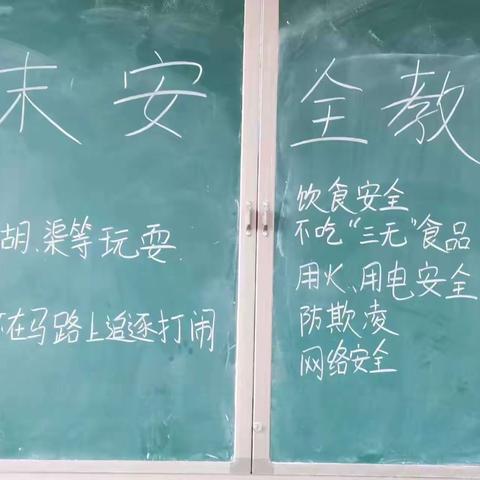 末安全教
胡、渠等玩耍
在马路上追逐打闹
饮食安全
不吃“三无”食品
用火、用电安全
防欺凌
网络安全